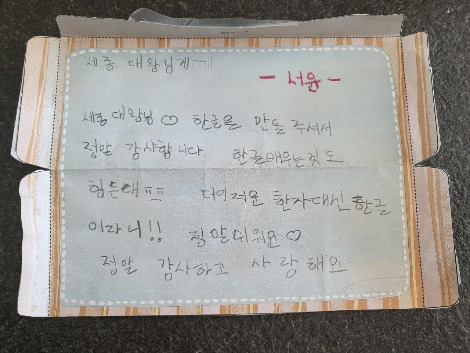 세종 대왕님께
- 서윤 -
세종대왕님♡ 한글을 만들 주셔서
정말 감사합니다. 한글배우는것도
힘든데 ㅠㅠ 더어려운 한자대신 한글
이라니!! 정말 ♡
정말 감사하고 사랑해요